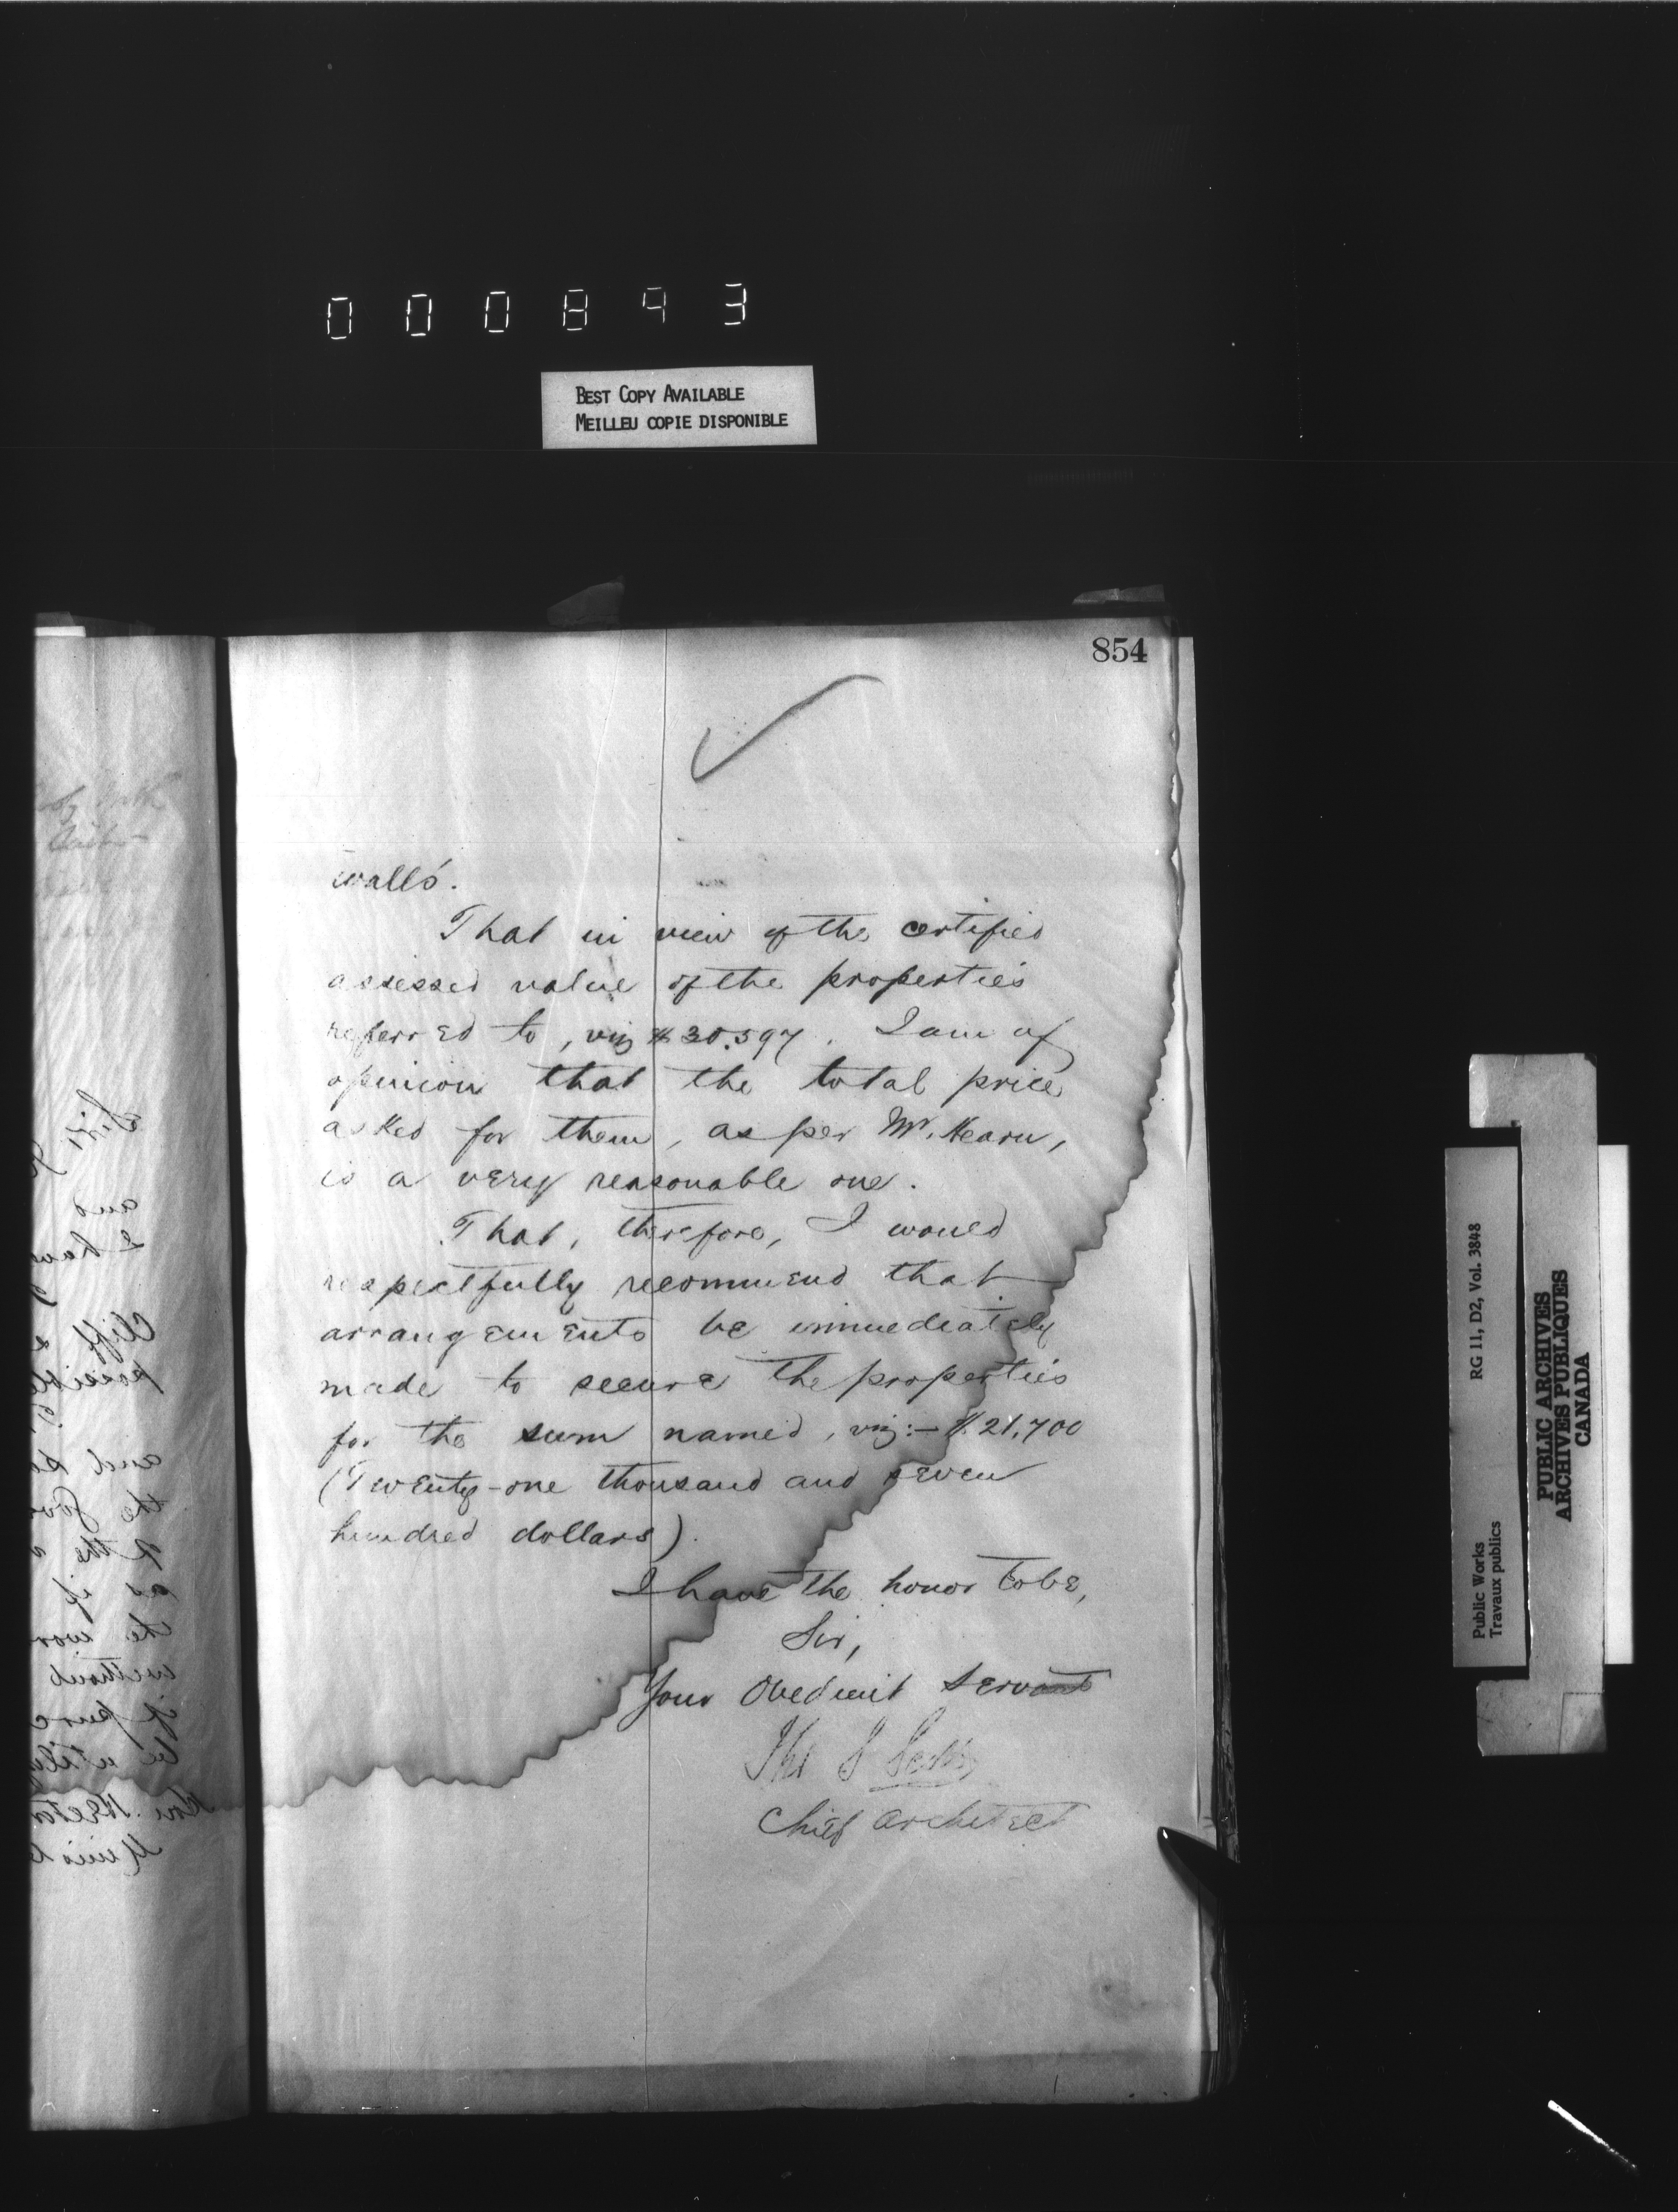 000893
BEST COPY AVAILABLE
MEILLEU COPIE DISPONIBLE
854
walls.
That in view of the certified
assessed value of the properties
referred to, viz $30.597. I am of
opinion that the total price
asked for them, as per Mr. Hearn,
is a very reasonable one.
That, therefore, I would
respectfully recommend that
arrangements be immediately
made to secure the properties
for the sum named, viz:- $21,700
(Twenty-one thousand and seven
hundred dollars).
I have the honor to be,
Sir,
Your Obedient Servant
Chief Architect
RG 11, D2, Vol. 3848
Public Works
Travaux publics
PUBLIC ARCHIVES
ARCHIVES PUBLIQUES
CANADA